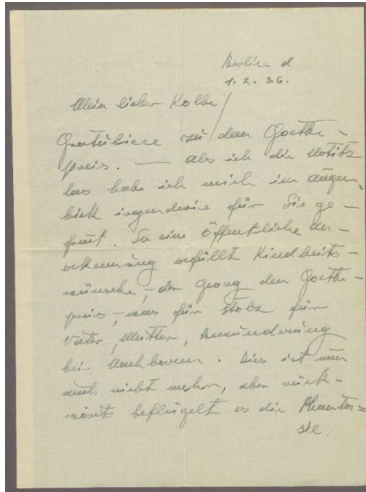 Berlin d
1.2.36.
Mein lieber Kolbe!
Gratuliere zu dem Goethe-
preis. — Als ich die Notitz
las habe ich mich im Augen-
blick irgendwie für Sie ge-
freut. So eine Öffentliche An-
erkennung erfüllt Kindheits-
wünsche, der Georg den Goethe-
preis, was für Stolz für
Väter, Mütter, Bewunderung
bei Nachbaren. Dies ist nun
auch nicht mehr, aber rück-
wärts beflügelt es die Phanta-
sie.